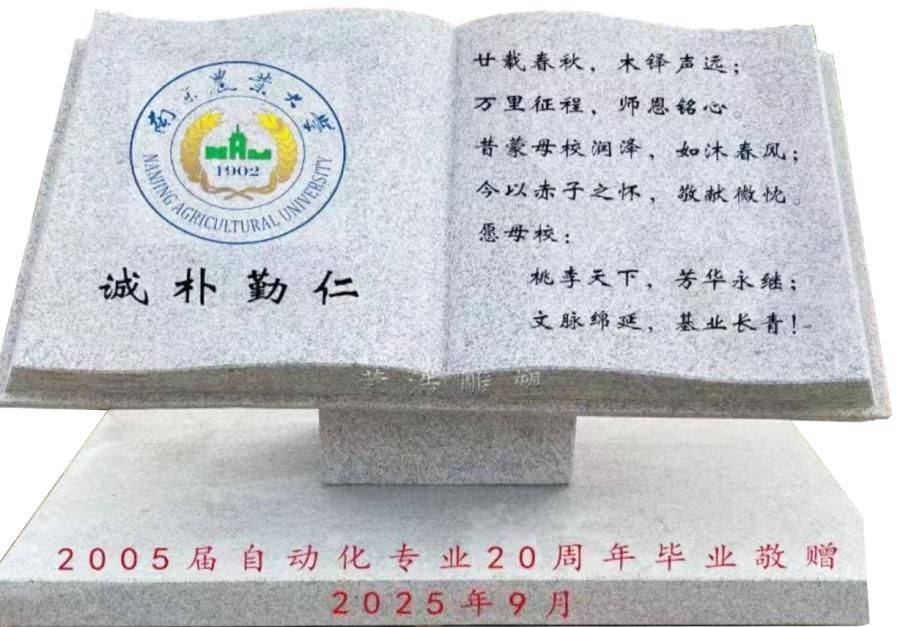 南京農業大學
1902
NANJING AGRICULTURAL UNIVERSITY
诚朴勤仁
廿载春秋，木铎声远；
万里征程，师恩铭心。
昔蒙母校润泽，如沐春风；
今以赤子之怀，敬献微忱。
愿母校：
桃李天下，芳华永继；
文脉绵延，基业长青！
2005届自动化专业20周年毕业敬赠
2025年9月